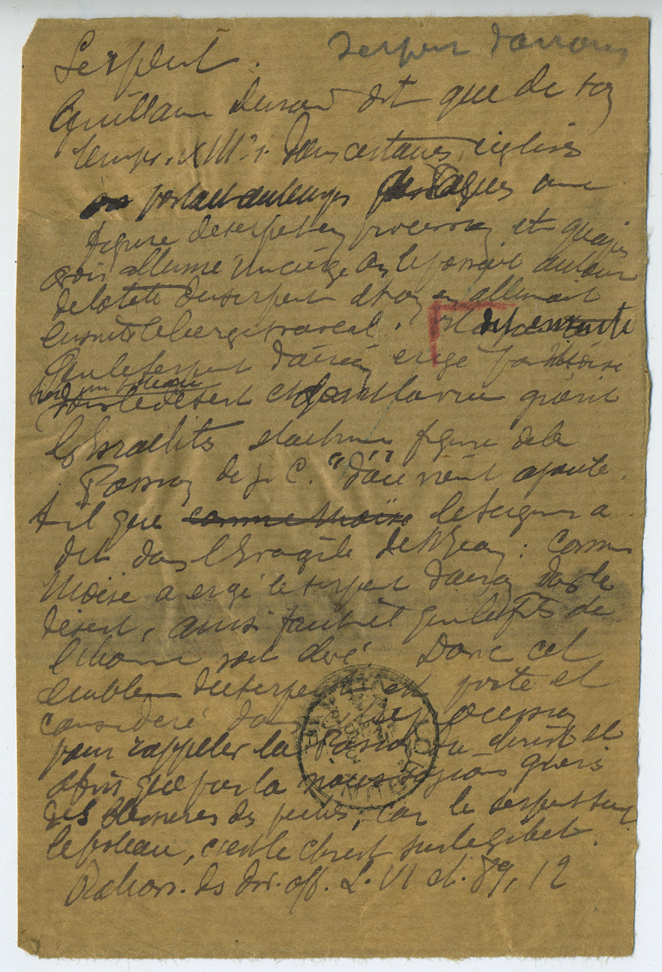 Serpent. Serpent d'airain
Guillaume Durand dit que de son
temps, XIIIe s. Dans certaines églises
on portait au temps de Pâques une
figure de serpent en procession et qu'après
avoir allumé un cierge on le posait autour
de la tête du serpent et on en allumait
ensuite le cierge pascal. dit ensuite
que le serpent d'airain érigé par Moïse
sur un poteau
dans le désert et dont la vue guérit
les Israëlites est une figure de la
Passion de J. C. "d'où vient ajoute-
t-il que comme Moïse le Seigneur a
dit dans l'Evangile de St Jean : comme
Moïse a érigé le serpent d'airain dans le
désert, ainsi faut-il que le fils de
l'homme soit élevé. Donc cet
emblème du serpent est porté et
considéré dans procession
pour rappeler la Passion du Christ et
afin que par là nous soyons guéris
des blessures des péchés, car le serpent sur
le poteau, c'est le Christ sur le gibet.
Ration. des div. off. L. VI ch. 89, 12